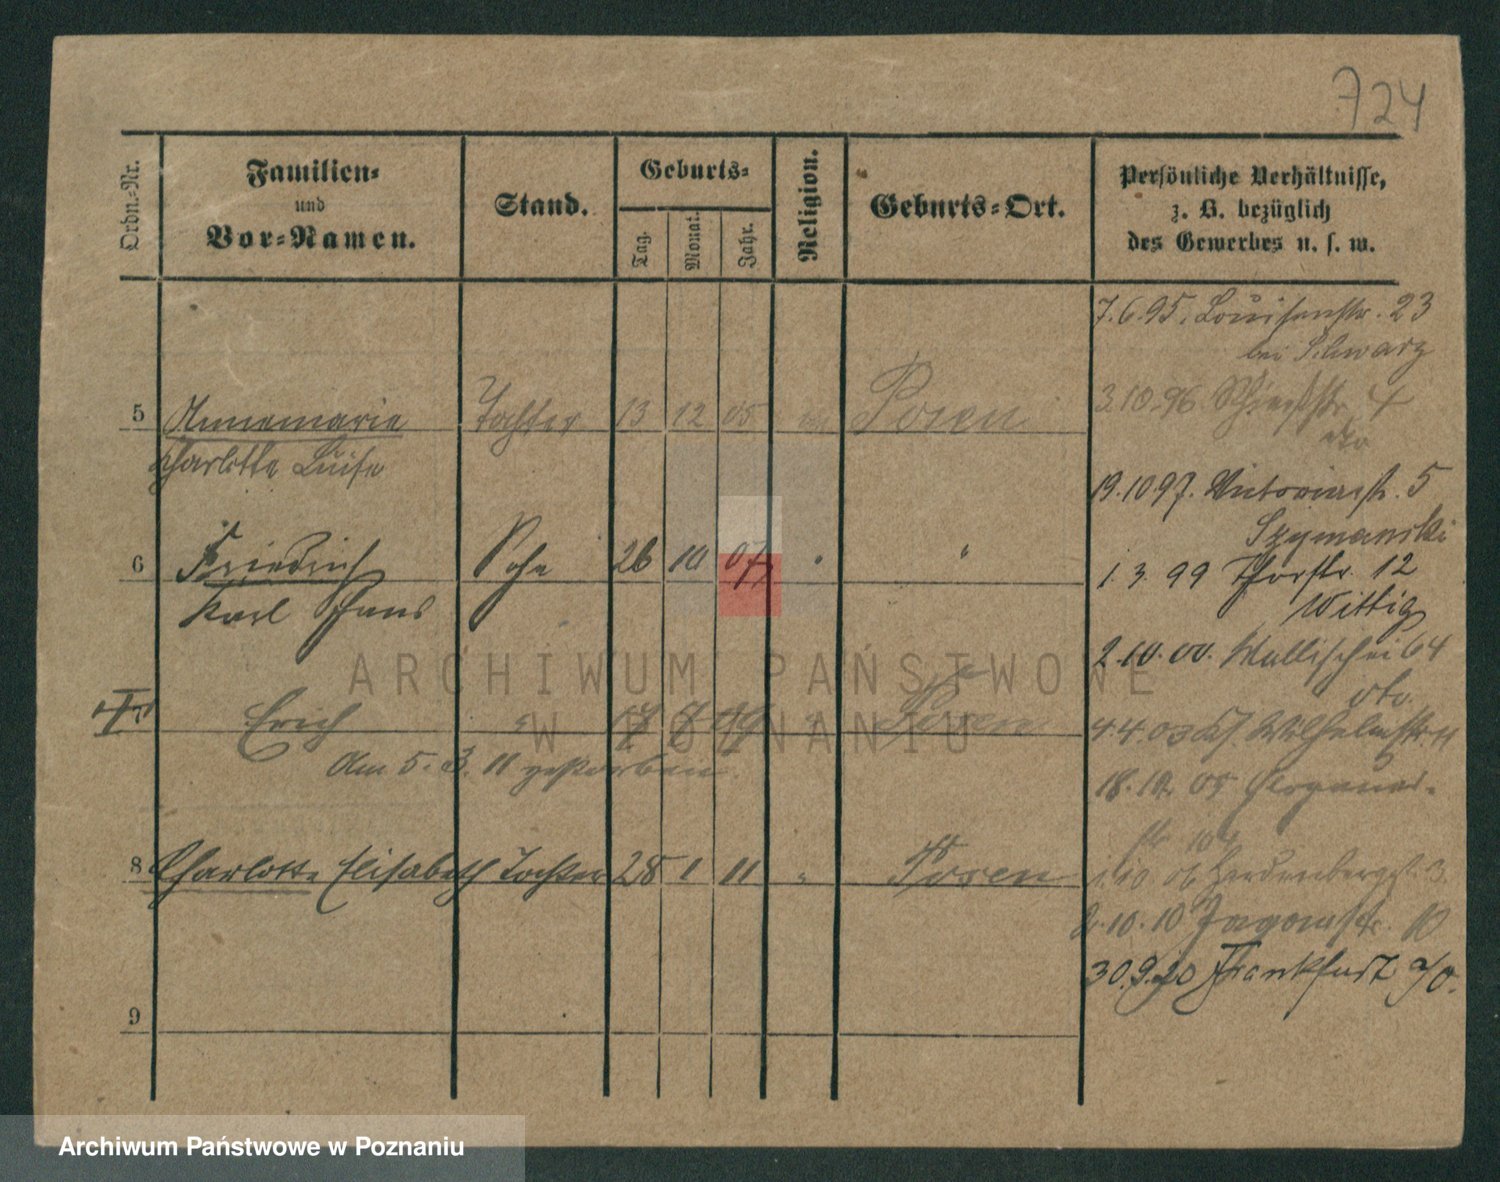 724
Ordn.-Nr.
Familien-
und
Vor-Namen.
Stand.
Geburts-
Tag.
Monat.
Jahr.
Religion.
Geburts-Ort.
Persönliche Verhältnisse,
z. B. bezüglich
des Gewerbes u. s. w.
7.6.95. Louisenstr. 23
bei Schwarz
5 Annemarie Tochter 13 12 05 Posen
Charlotte Luise
3.10.96. 4
19.10.97. Victoriastr. 5
Szymanski
6 Friedrich Sohn 26 10 07 " "
Karl Hans
1. 3. 99 Thorstr. 12
Wittig
2.10.00. Wallischei 64
dto.
7 Erich " 17 7 09 " Posen
Am 5. 3. 11 gestorben.
4.4.03 Kl. Wilhelmstr. 11
18.12.05 Glogauer-
str. 104
8 Charlotte Elisabeth Tochter 28 1 11 " Posen
1.10.06 Hardenbergstr. 3.
2.10.10 Jagowstr. 10
30.9.20 Frankfurt a/O.
9
ARCHIWUM PAŃSTWOWE
W POZNANIU
Archiwum Państwowe w Poznaniu